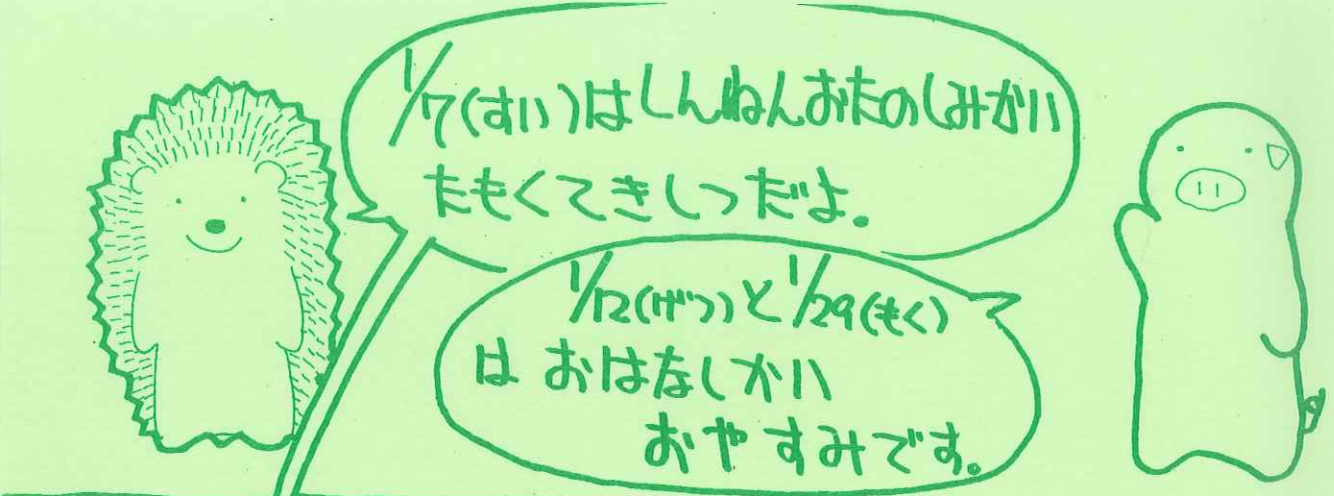 1/7(すい)はしんねんおたのしみかい
たもくてきしつだよ。
1/12(げつ)と1/29(もく)
は おはなしかい
おやすみです。